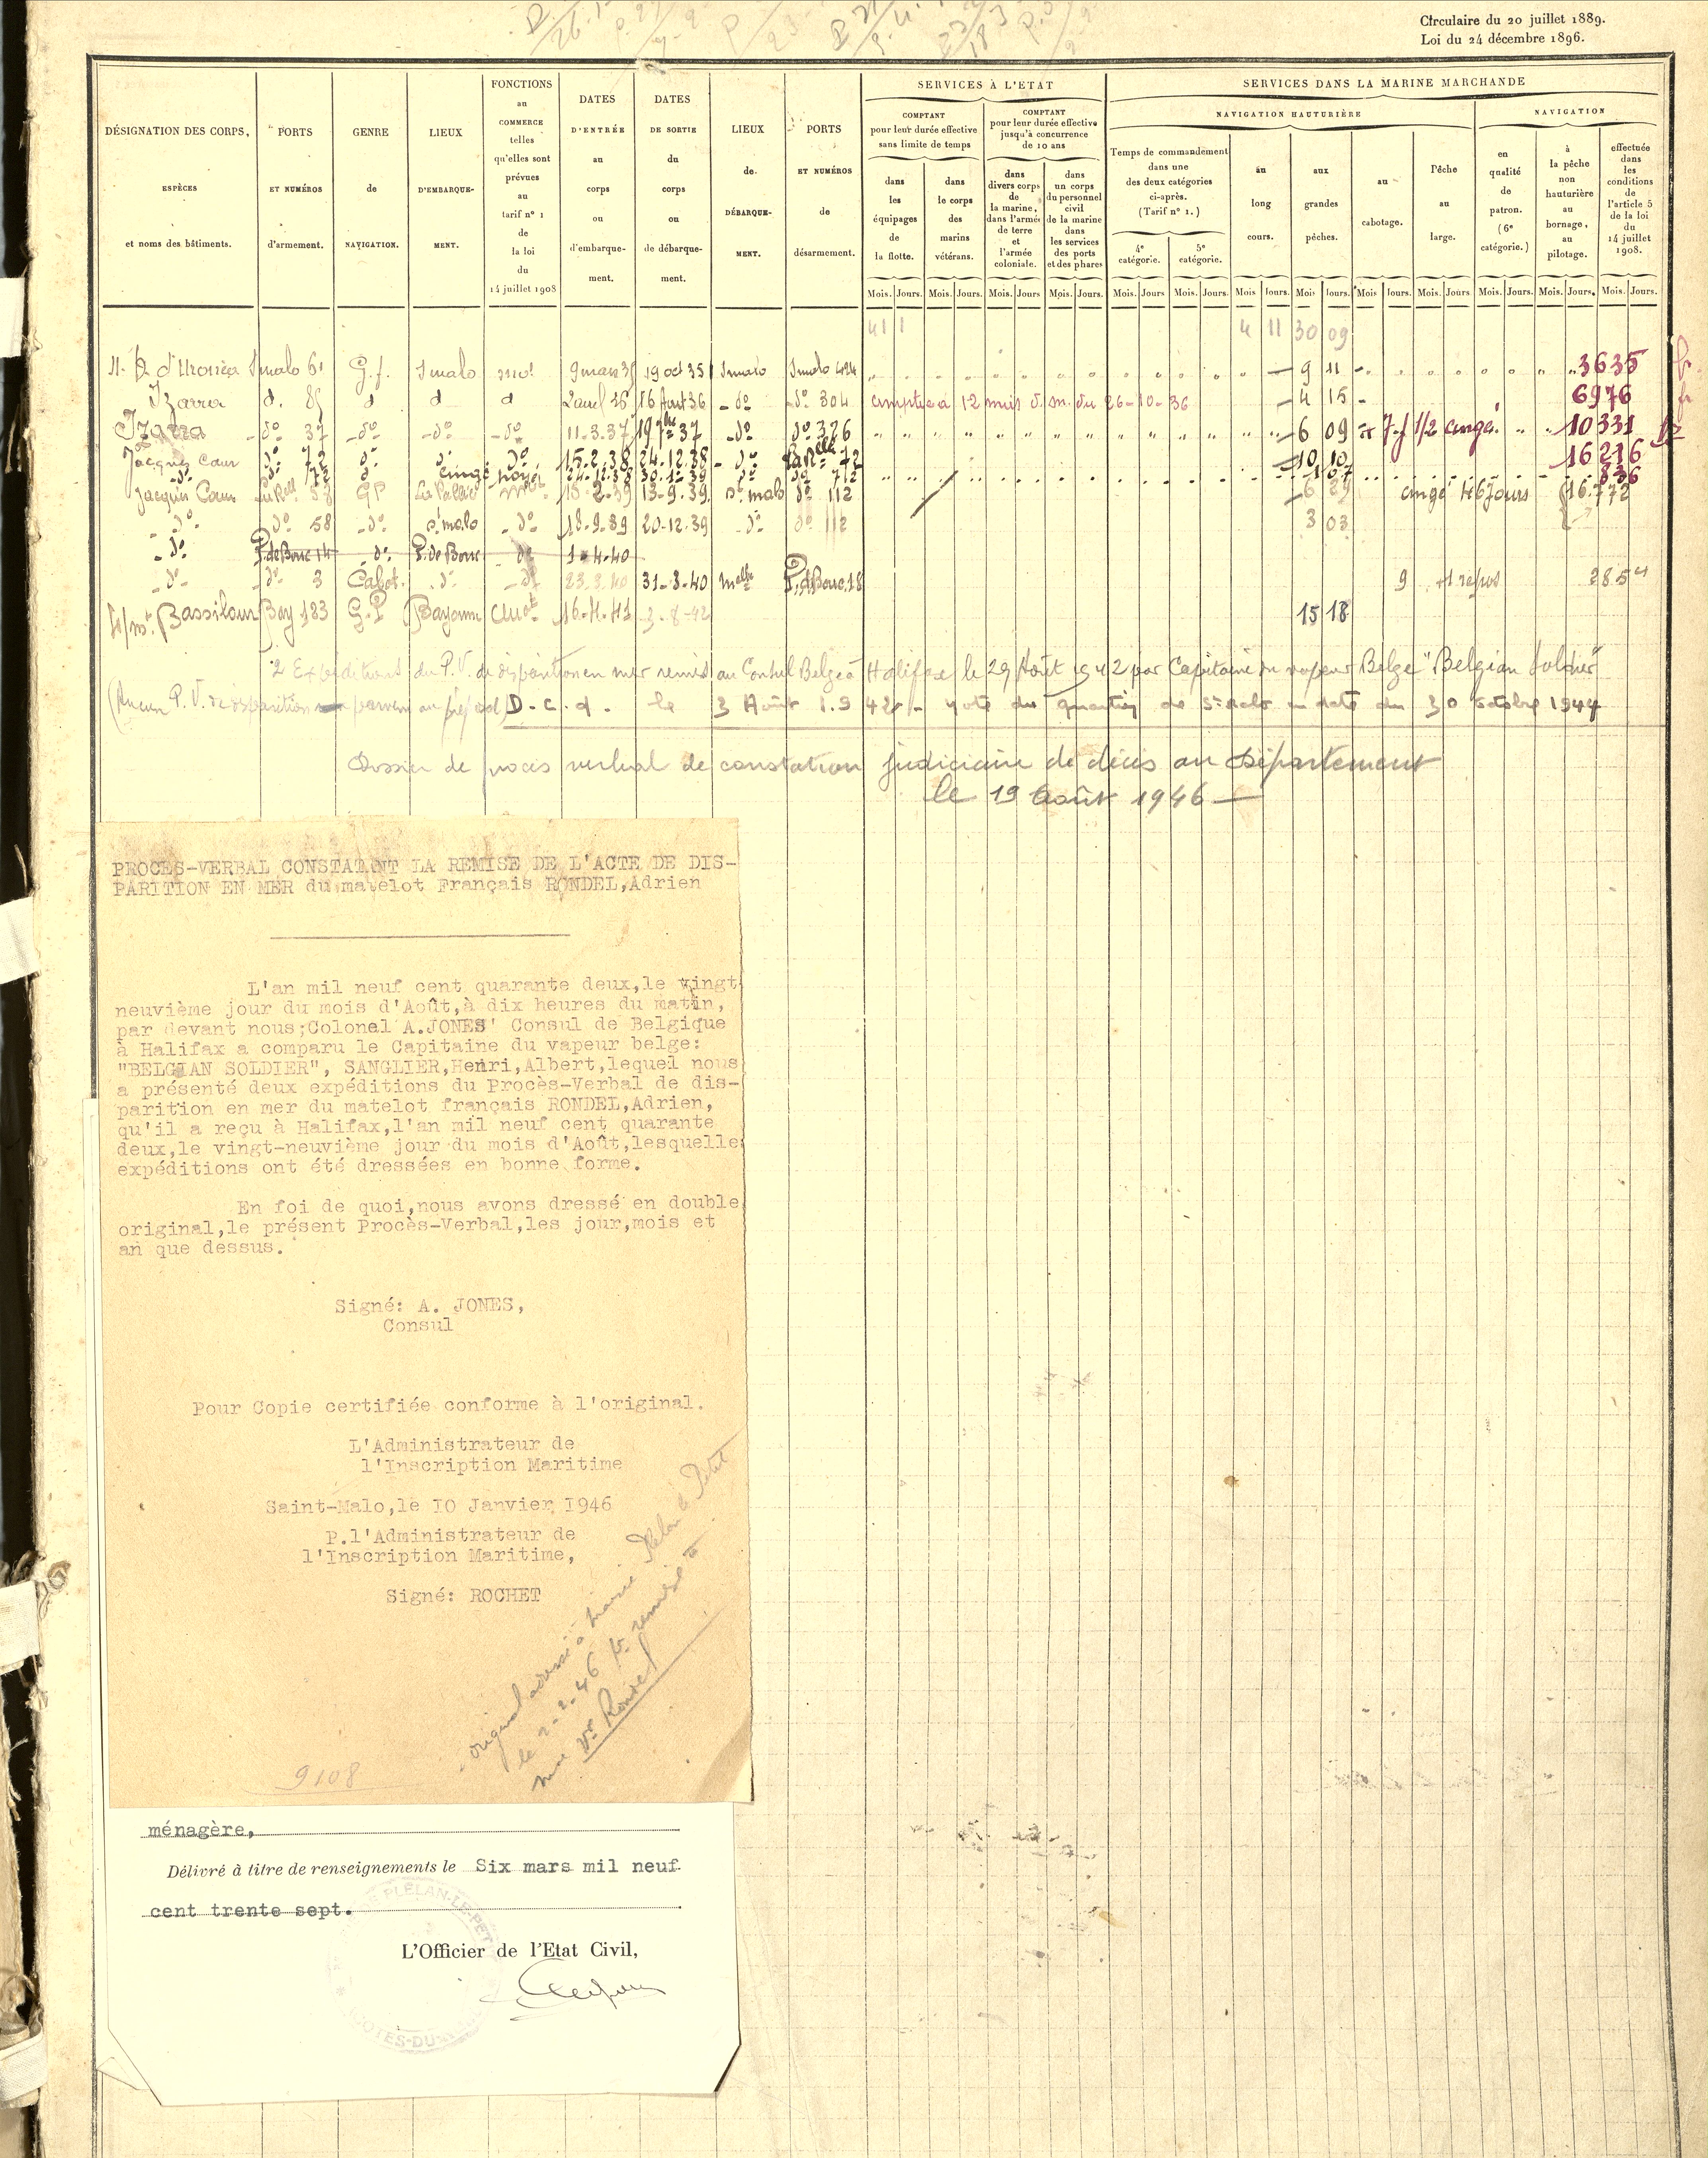 Circulaire du 20 juillet 1889.
Loi du 24 décembre 1896.
DÉSIGNATION DES CORPS,
ESPÈCES
et noms des bâtiments.
PORTS
ET NUMÉROS
d'armement.
GENRE
de
NAVIGATION.
LIEUX
D'EMBARQUE-
MENT.
FONCTIONS
au
COMMERCE
telles
qu'elles sont
prévues
au
tarif nº 1
de
la loi
du
14 juillet 1908
DATES
D'ENTRÉE
au
corps
ou
d'embarque-
ment.
DATES
DE SORTIE
du
corps
ou
de débarque-
ment.
LIEUX
de
DÉBARQUE-
MENT.
PORTS
ET NUMÉROS
de
désarmement.
SERVICES À L'ETAT
COMPTANT
pour leur durée effective
sans limite de temps
dans
les
équipages
de
la flotte.
dans
le corps
des
marins
vétérans.
COMPTANT
pour leur durée effective
jusqu'à concurrence
de 10 ans
dans
divers corps
de
la marine,
dans l'armée
de terre
et
l'armée
coloniale.
dans
un corps
du personnel
civil
de la marine
dans
les services
des ports
et des phares
SERVICES DANS LA MARINE MARCHANDE
NAVIGATION HAUTURIÈRE
Temps de commandement
dans une
des deux catégories
ci-après.
(Tarif nº 1.)
4e
catégorie.
5e
catégorie.
au
long
cours.
aux
grandes
pêches.
au
cabotage.
Pêche
au
large.
NAVIGATION
en
qualité
de
patron.
(6e
catégorie.)
à
la pêche
non
hauturière
au
bornage,
au
pilotage.
effectuée
dans
les
conditions
de
l'article 5
de la loi
du
14 juillet
1908.
Mois. Jours. Mois. Jours. Mois. Jours Mois. Jours. Mois. Jours Mois. Jours. Mois Jours. Mois Jours. Mois Jours. Mois. Jours Mois. Jours. Mois. Jours. Mois. Jours.
41 1 4 11 30 09
61 G.P. Smalo 9 mars 35 19 oct 35 Smalo Smalo 424 9 11 3635
Izarra d. 85 d d d 16 Aout 36 do do 304 12 mois 26-10-36 4 15 6976
Izarra do 37 do do do 11.3.37 37 do do 376 6 09 1/2 congé 10331
Jacques Coeur do 72 do 15.2.38 24.12.38 do 72 10 10 16216
do 72 congé 30.1.39 do 712 1 07 836
Jacques Coeur 58 GP La Pallice 15-2-39 13-9-39 St malo do 112 6 29 congé 46 jours 16.772
do do 58 do St malo do 18-9-39 20-12-39 do do 112 3 03
do P. de Bouc 14 do P. de Bouc do 1-4-40
do do 3 Cabot. do do 23.3.40 31-3-40 P. de Bouc 18 9 +1 repos 285
Bassilour Bay 183 G.P Bayonne 16-4-41 3-8-42 15 18
2 Expéditions du P.V. de disparition en mer remis au Consul Belge à Halifax le 29 Août 1942 par Capitaine du vapeur Belge "Belgian Soldier"
(Aucun P.V. de disparition parvenu D.c.d. le 3 Août 1942 - note du quartier de St malo en date du 30 octobre 1944
Dossier de procès verbal de constatation judiciaire de décès au Département
le 19 Août 1946 —
PROCES-VERBAL CONSTATANT LA REMISE DE L'ACTE DE DIS-
PARITION EN MER du matelot Français RONDEL,Adrien
L'an mil neuf cent quarante deux,le vingt
neuvième jour du mois d'Août,à dix heures du matin,
par devant nous;Colonel A.JONES' Consul de Belgique
à Halifax a comparu le Capitaine du vapeur belge:
"BELGIAN SOLDIER", SANGLIER,Henri,Albert,lequel nous
a présenté deux expéditions du Procès-Verbal de dis-
parition en mer du matelot français RONDEL,Adrien,
qu'il a reçu à Halifax,l'an mil neuf cent quarante
deux,le vingt-neuvième jour du mois d'Août,lesquelle
expéditions ont été dressées en bonne forme.
En foi de quoi,nous avons dressé en double
original,le présent Procès-Verbal,les jour,mois et
an que dessus.
Signé: A. JONES,
Consul
Pour Copie certifiée conforme à l'original.
L'Administrateur de
l'Inscription Maritime
Saint-Malo,le 10 Janvier 1946
P.l'Administrateur de
l'Inscription Maritime,
Signé: ROCHET
original adressé à mairie Plélan le Petit
le 2-2-46 pr remise à
Mme Vve Rondel
9108
ménagère,
Délivré à titre de renseignements le Six mars mil neuf
cent trente sept.
L'Officier de l'Etat Civil,
PLÉLAN-LE-PET
COTES-DU